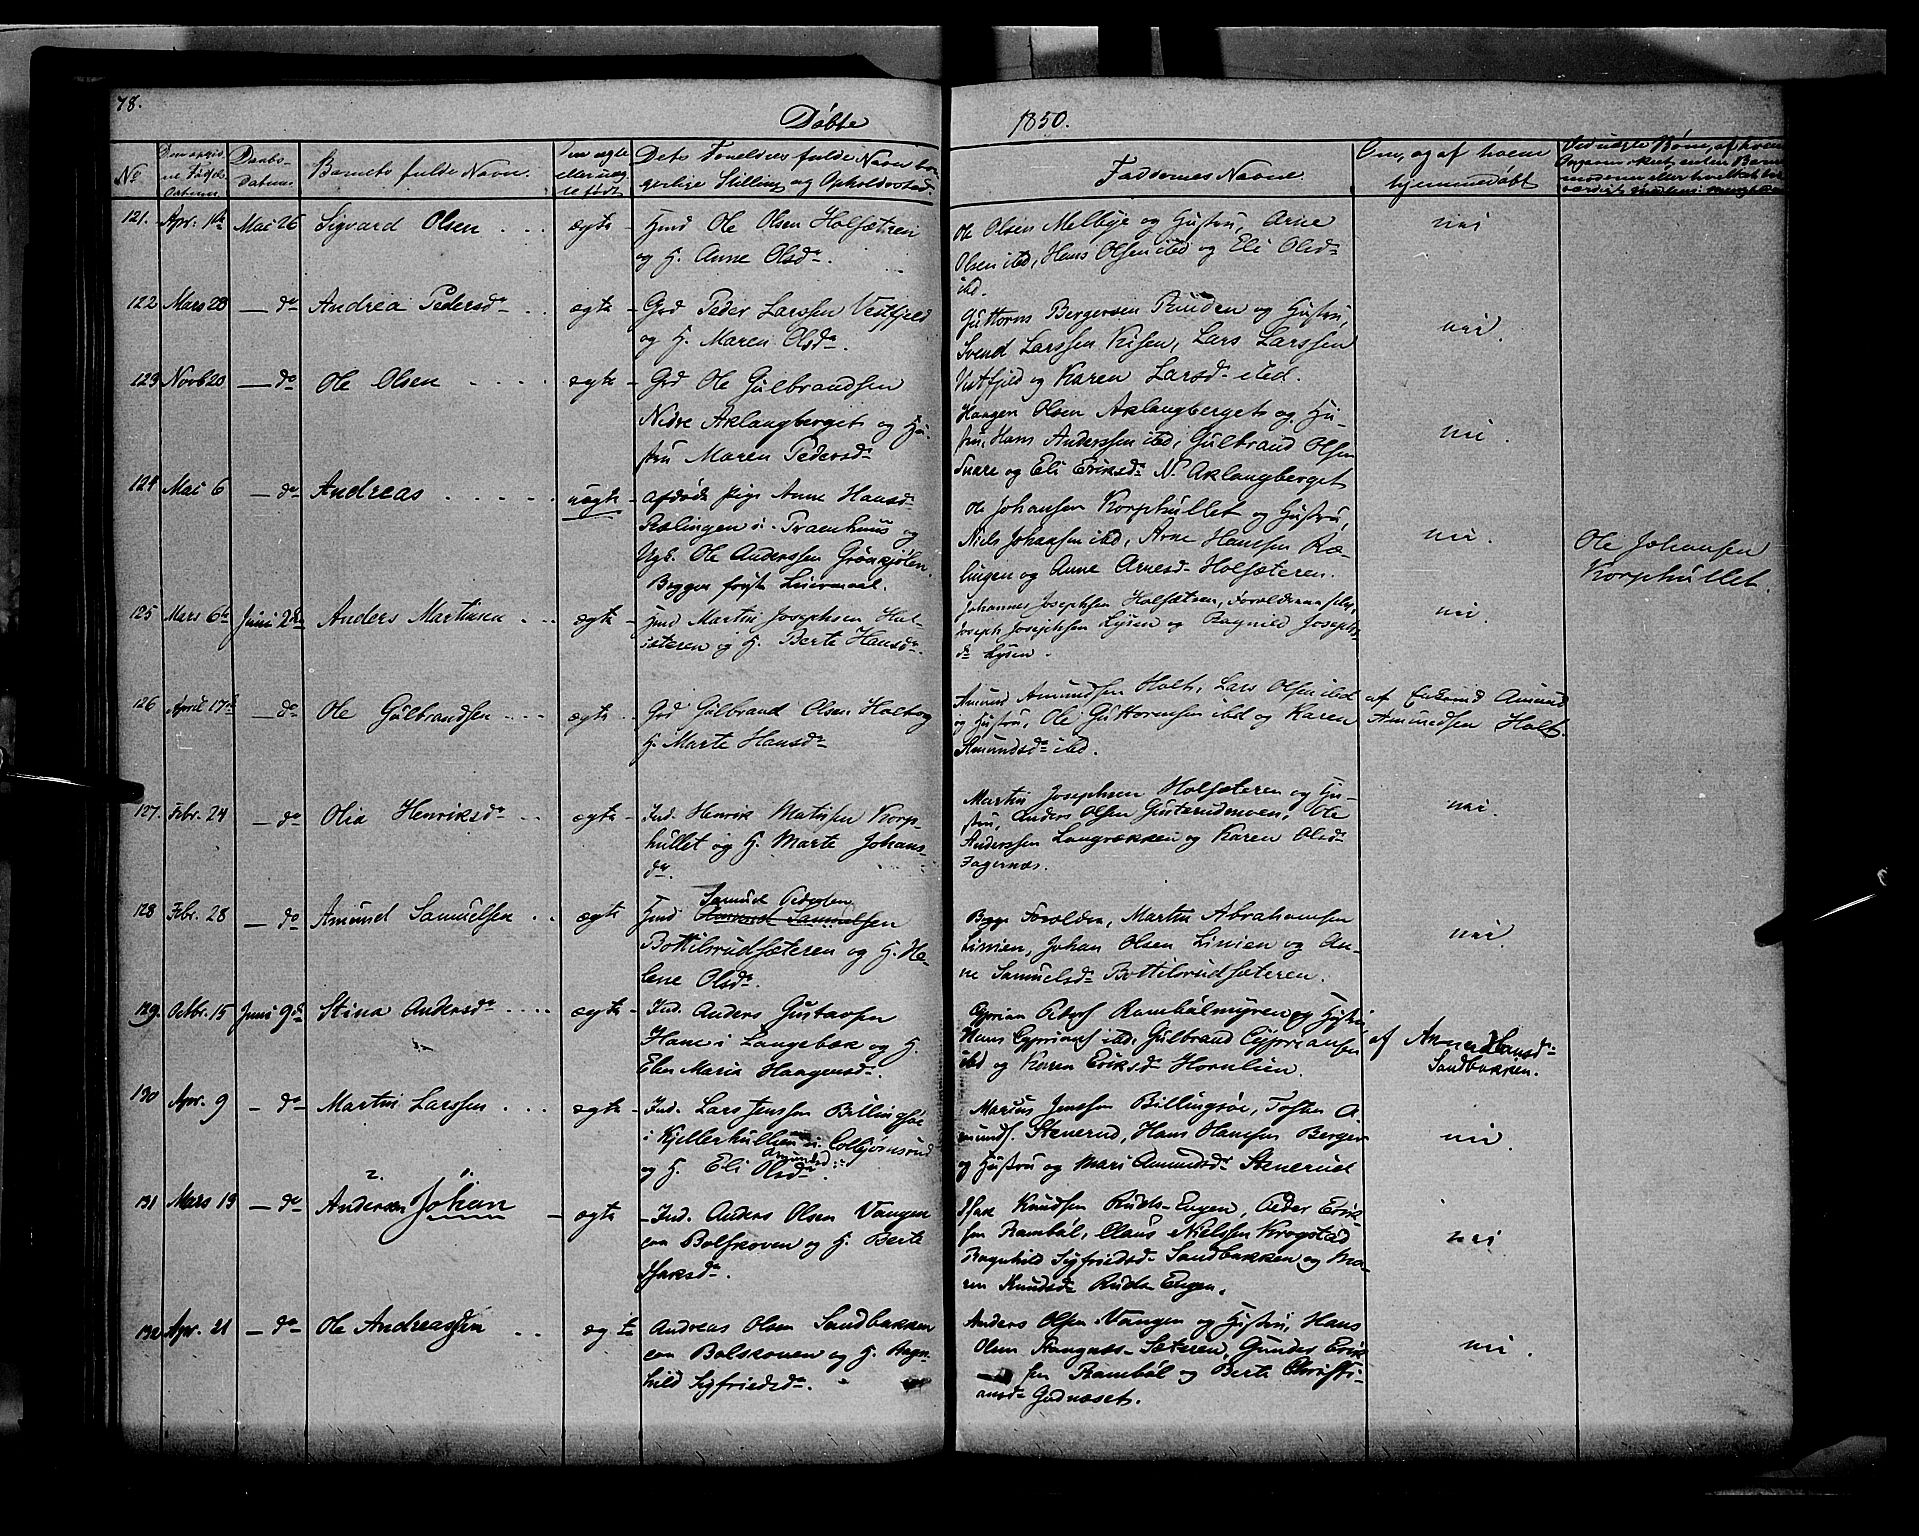 78.
Döbte 1850.
No
Datum
Daabs-
Datum
Barnets fulde Navn.
Dets Foreldres fulde Navn bor-
gerlige Stilling og Opholdssted
Faddernes Navne
Om, og af hvem
hjemmedöbt
121. Apr. Mai 26 Sigvard Olsen . . . ægte - Hmd Ole Olsen Holsætren
og H. Anne Olsdr.
Ole Olsen Melbye og Hustru, Arne
Olsen ibd, Hans Olsen ibd og Eli Olsdr
ibd.
nei
122 Mars 28 — do Andrea Pedersdr . . ægte - Grd Peder Larssen Vestfjeld
og H. Maren Olsdr.
Guttorm Bergersen Ruuden og Hustru,
Svend Larssen Kisen, Lars Larssen
Vestfjeld og Karen Larsdr ibd.
nei.
123 Novb 20 — do Ole Olsen . . . . ægte - Grd Ole Gulbrandsen
Nedre Aklangberget og Hu-
stru Maren Pedersdr
Haagen Olsen Aklangberget og Hu-
stru, Hans Anderssen ibd, Gulbrand Olsen
Snare og Eli Eriksdr N. Aklangberget
nei.
124 Mai 6 — do Andreas . . . . . uægte - Afdöde Pige Anne Hansdr
Rælingen i Praenhuus og
Ugk. Ole Anderssen Grönsjölen.
Begges förste Leiermaal.
Ole Johansen Korphullet og Hustru,
Niels Johansen ibd, Arne Hanssen Ræ-
lingen og Anne Arnesdr Holsæteren.
nei.
Ole Johansen
Korphullet.
125 Mars 6te Juni 2den Anders Martinsen . . . ægte - Hmd Martin Josephsen Hol-
sæteren og H. Berte Hansdr.
Johannes Josephsen Holsætren, Forældrene selv,
Joseph Josephsen Lysen og Ragnild Josephs-
dr Lysen.
nei.
126 April 17de — do Ole Gulbrandsen . . . . ægte . . Grd Gulbrand Olsen Holt og
H. Marte Hansdr
Amund Amundsen Holt, Lars Olsen ibd
og Hustru, Ole Guttormsen ibd og Karen
Amundsdr ibd.
af Enkemd Amund
Amundsen Holt.
127. Febr. 24 — do Olia Henriksdr . . ægte - Ind. Henrik Matisen Korp-
hullet og H. Marte Johans-
dr.
Martin Josephsen Holsæteren og Hu-
stru, Anders Olsen Gusterudmoen, Ole
Anderssen Langrækken og Karen Olsdr
Fagernæs.
nei.
128 Febr. 28 — do Amund Samuelsen . . ægte Hmd Samuel Pedersen
Bottilsrudsæteren og H. He-
lene Olsdr.
Begge Forældre, Martin Abrahamsen
Linien, Johan Olsen Linien og An-
ne Samuelsdr Bottilsrudsæteren.
nei.
129. Octbr. 15 Juni 9de Stina Andersdr . . . . ægte - Ind. Anders Gustavsen
Hane i Langebæk og H.
Elen Maria Haagensdr.
Cyprian Peders Rambölmyren og Hustru
Hans Cyprians ibd, Gulbrand Cypriansen
ibd og Karen Eriksdr Hornlien.
af Anne Hansdr
Sandbakken.
130 Apr. 9 — do Martin Larssen . . . ægte - Ind. Lars Jenssen Billingsöe
i Kjellerhullen i Colbjörnsrud
og H. Eli Amundsdr.
Olsdr
Marius Jenssen Billingsöe, Tosten A-
munds. Stenerud, Hans Hanssen Berger
og Hustru og Mari Amundsdr Stenerud
nei
131 Mars 19 — do Andersen Johan — ægte - Ind. Anders Olsen Vangen
paa Bolskoven og H. Berte
Isaksdr.
Isak Knudsen Ruds-Engen, Peder Erik-
sen Ramböl, Claus Nielssen Krogstad
Ragnhild Sigfriedsdr Sandbakken og Ma-
ren Knudsdr Ruds Engen.
nei
132 Apr. 21 — do Ole Andreassen . . ægte Andreas Olsen Sandbakken
paa Bolskoven og H. Ragn-
hild Sigfriedsdr.
Anders Olsen Vangen og Hustru, Hans
Olsen Stangnæs-Sæteren, Gunder Erik-
sen Ramböl og Berte Christi-
ansdr Godnæset.
nei.